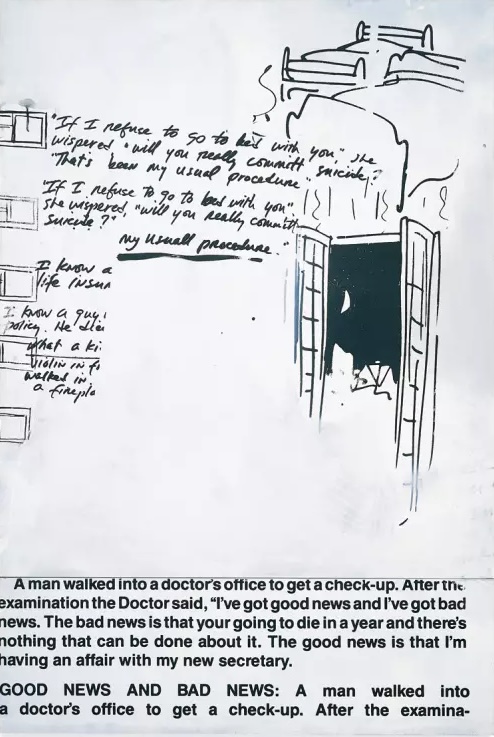 "If I refuse to go to bed with you", she
wispered, "will you really committ suicide?
"That's been my usual procedure".
"If I refuse to go to bed with you"
she wispered, "will you really committ
suicide?"
"my usuall procedure."
I know a
life insur
I know a guy
policy. He died
what a ki
violin in fi
walked in
a firepla
A man walked into a doctor's office to get a check-up. After the
examination the Doctor said, "I've got good news and I've got bad
news. The bad news is that your going to die in a year and there's
nothing that can be done about it. The good news is that I'm
having an affair with my new secretary.
GOOD NEWS AND BAD NEWS: A man walked into
a doctor's office to get a check-up. After the examina-